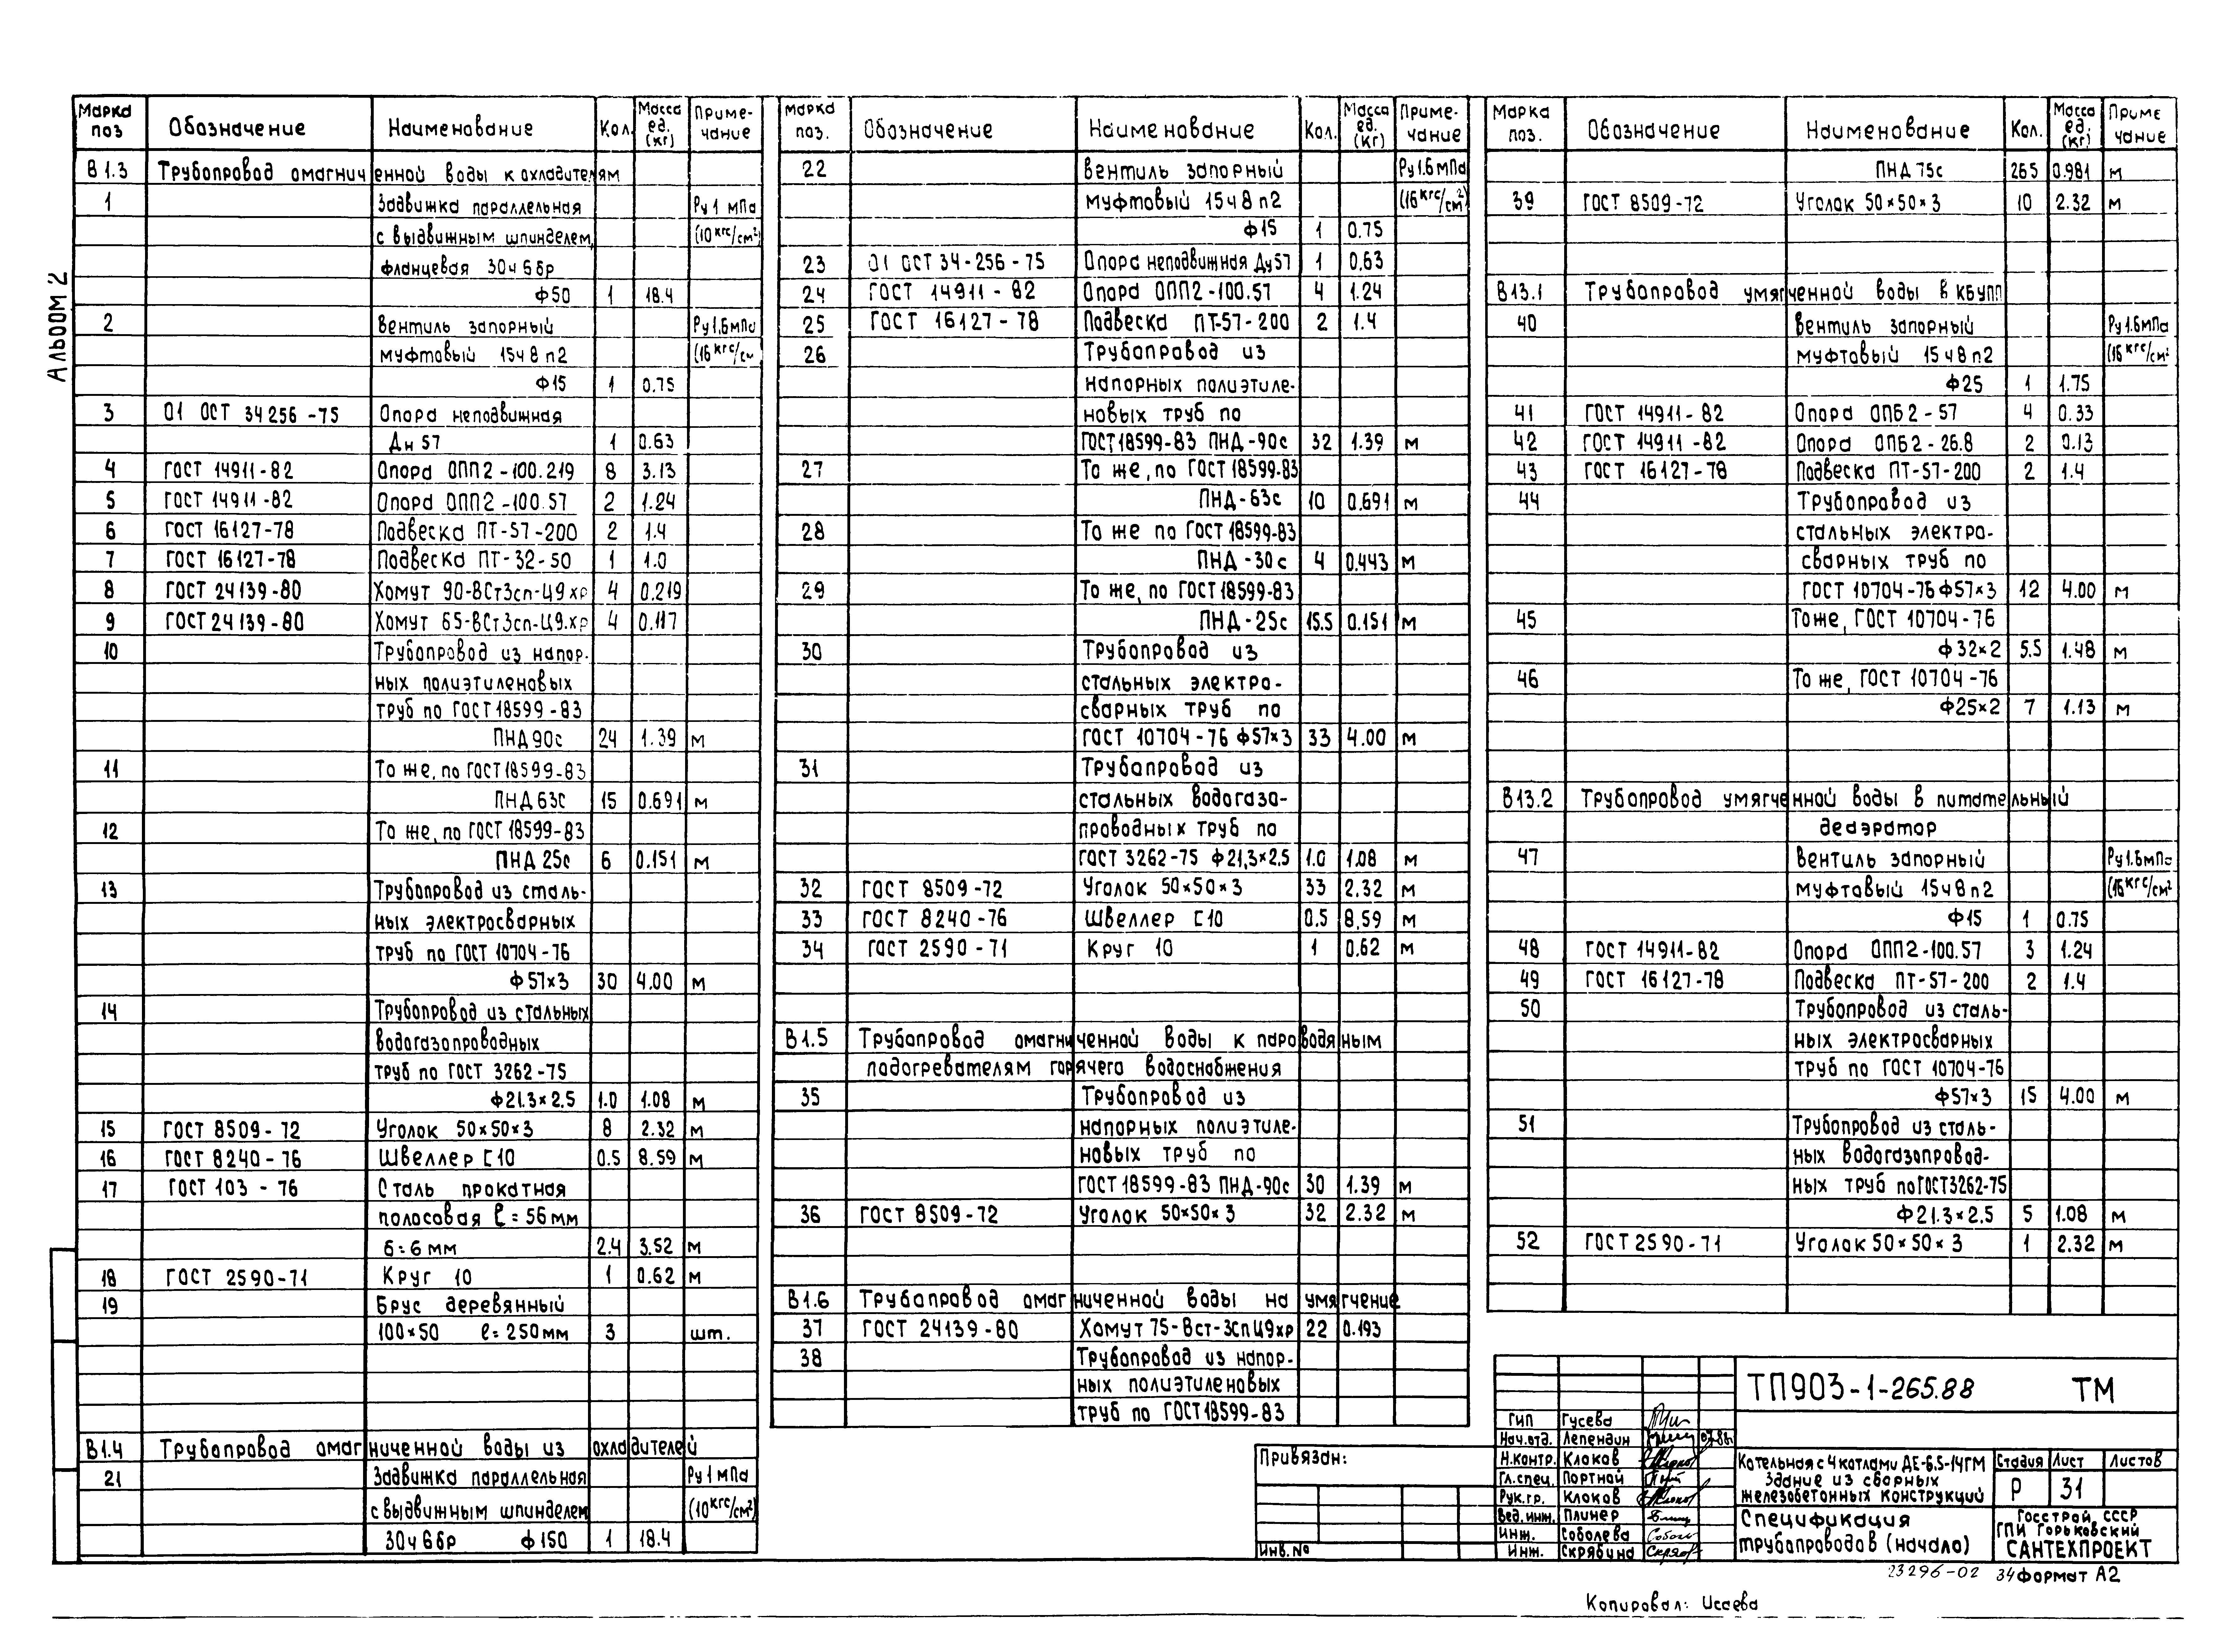 Альбом 2
Марка поз | Обозначение | Наименование | Кол. | Масса ед. (кг) | Приме-чание
В1.3 Трубопровод омагниченной воды к охладителям
1 Задвижка параллельная Ру1 мПа
с выдвижным шпинделем, (10 кгс/см²)
фланцевая 30ч6бр
Ф50 1 18.4
2 Вентиль запорный Ру1.6мПа
муфтовый 15ч8п2 (16 кгс/см
Ф15 1 0.75
3 01 ОСТ 34 256-75 Опора неподвижная
Дн 57 1 0.63
4 ГОСТ 14911-82 Опора ОПП2-100.219 8 3.13
5 ГОСТ 14911-82 Опора ОПП2-100.57 2 1.24
6 ГОСТ 16127-78 Подвеска ПТ-57-200 2 1.4
7 ГОСТ 16127-78 Подвеска ПТ-32-50 1 1.0
8 ГОСТ 24139-80 Хомут 90-ВСт3сп-Ц9.хр 4 0.219
9 ГОСТ 24139-80 Хомут 65-ВСт3сп-Ц9.хр 4 0.117
10 Трубопровод из напор-
ных полиэтиленовых
труб по ГОСТ 18599-83
ПНД 90с 24 1.39 м
11 То же, по ГОСТ 18599-83
ПНД 63С 15 0.691 м
12 То же, по ГОСТ 18599-83
ПНД 25с 6 0.151 м
13 Трубопровод из сталь-
ных электросварных
труб по ГОСТ 10704-76
Ф57×3 30 4.00 м
14 Трубопровод из стальных
водогазопроводных
труб по ГОСТ 3262-75
Ф21.3×2.5 1.0 1.08 м
15 ГОСТ 8509-72 Уголок 50×50×3 8 2.32 м
16 ГОСТ 8240-76 Швеллер С10 0.5 8.59 м
17 ГОСТ 103-76 Сталь прокатная
полосовая ℓ=56мм
б=6мм 2.4 3.52 м
18 ГОСТ 2590-71 Круг 10 1 0.62 м
19 Брус деревянный
100×50 ℓ=250мм 3 шт.
В1.4 Трубопровод омагниченной воды из охладителей
21 Задвижка параллельная Ру1 мПа
с выдвижным шпинделем (10 кгс/см²)
30ч6бр ф150 1 18.4
Марка поз. | Обозначение | Наименование | Кол. | Масса ед. (кг) | Приме-чание
22 Вентиль запорный Ру1.6 мПа
муфтовый 15ч8п2 (16 кгс/см²)
Ф15 1 0.75
23 01 ОСТ 34-256-75 Опора неподвижная Ду57 1 0.63
24 ГОСТ 14911-82 Опора ОПП2-100.57 4 1.24
25 ГОСТ 16127-78 Подвеска ПТ-57-200 2 1.4
26 Трубопровод из
напорных полиэтиле-
новых труб по
ГОСТ 18599-83 ПНД-90с 32 1.39 м
27 То же, по ГОСТ 18599-83
ПНД-63с 10 0.691 м
28 То же по ГОСТ 18599-83
ПНД-30с 4 0.443 м
29 То же, по ГОСТ 18599-83
ПНД-25с 15.5 0.151 м
30 Трубопровод из
стальных электро-
сварных труб по
ГОСТ 10704-76 Ф57×3 33 4.00 м
31 Трубопровод из
стальных водогазо-
проводных труб по
ГОСТ 3262-75 Ф21,3×2,5 1.0 1.08 м
32 ГОСТ 8509-72 Уголок 50×50×3 33 2.32 м
33 ГОСТ 8240-76 Швеллер С10 0.5 8,59 м
34 ГОСТ 2590-71 Круг 10 1 0.62 м
В1.5 Трубопровод омагниченной воды к пароводяным
подогревателям горячего водоснабжения
35 Трубопровод из
напорных полиэтиле-
новых труб по
ГОСТ 18599-83 ПНД-90с 30 1.39 м
36 ГОСТ 8509-72 Уголок 50×50×3 32 2.32 м
В1.6 Трубопровод омагниченной воды на умягчение
37 ГОСТ 24139-80 Хомут 75-Вст-3СпЦ9хр 22 0.193
38 Трубопровод из напор-
ных полиэтиленовых
труб по ГОСТ 18599-83
Марка поз. | Обозначение | Наименование | Кол. | Масса ед. (кг) | Приме чание
ПНД 75с 265 0.981 м
39 ГОСТ 8509-72 Уголок 50×50×3 10 2.32 м
В13.1 Трубопровод умягченной воды в КБУПП
40 Вентиль запорный Ру1.6мПа
муфтовый 15ч8п2 (16 кгс/см²
Ф25 1 1.75
41 ГОСТ 14911-82 Опора ОПБ2-57 4 0.33
42 ГОСТ 14911-82 Опора ОПБ2-26.8 2 0.13
43 ГОСТ 16127-78 Подвеска ПТ-57-200 2 1.4
44 Трубопровод из
стальных электро-
сварных труб по
ГОСТ 10704-76 Ф57×3 12 4.00 м
45 То же, ГОСТ 10704-76
Ф32×2 5.5 1.48 м
46 То же, ГОСТ 10704-76
Ф25×2 7 1.13 м
В13.2 Трубопровод умягченной воды в питательный
деаэратор
47 Вентиль запорный Ру1.6мПа
муфтовый 15ч8п2 (16 кгс/см²
Ф15 1 0.75
48 ГОСТ 14911-82 Опора ОПП2-100.57 3 1.24
49 ГОСТ 16127-78 Подвеска ПТ-57-200 2 1.4
50 Трубопровод из сталь-
ных электросварных
труб по ГОСТ 10704-76
Ф57×3 15 4.00 м
51 Трубопровод из сталь-
ных водогазопровод-
ных труб по ГОСТ 3262-75
Ф21.3×2.5 5 1.08 м
52 ГОСТ 2590-71 Уголок 50×50×3 1 2.32 м
Привязан:
Инв.№
ГИП Гусева
Нач.отд. Лепендин 07.88г
Н.контр. Клоков
Гл.спец. Портной
Рук.гр. Клоков
Вед.инж. Плинер
Инж. Соболева
Инж. Скрябина
ТП903-1-265.88 ТМ
Котельная с 4 котлами ДЕ-6.5-14ГМ
Здание из сборных
железобетонных конструкций
Стадия Лист Листов
Р 31
Спецификация
трубопроводов (начало)
Госстрой СССР
ГПИ Горьковский
САНТЕХПРОЕКТ
23296-02 34 Формат А2
Копировал: Исаева